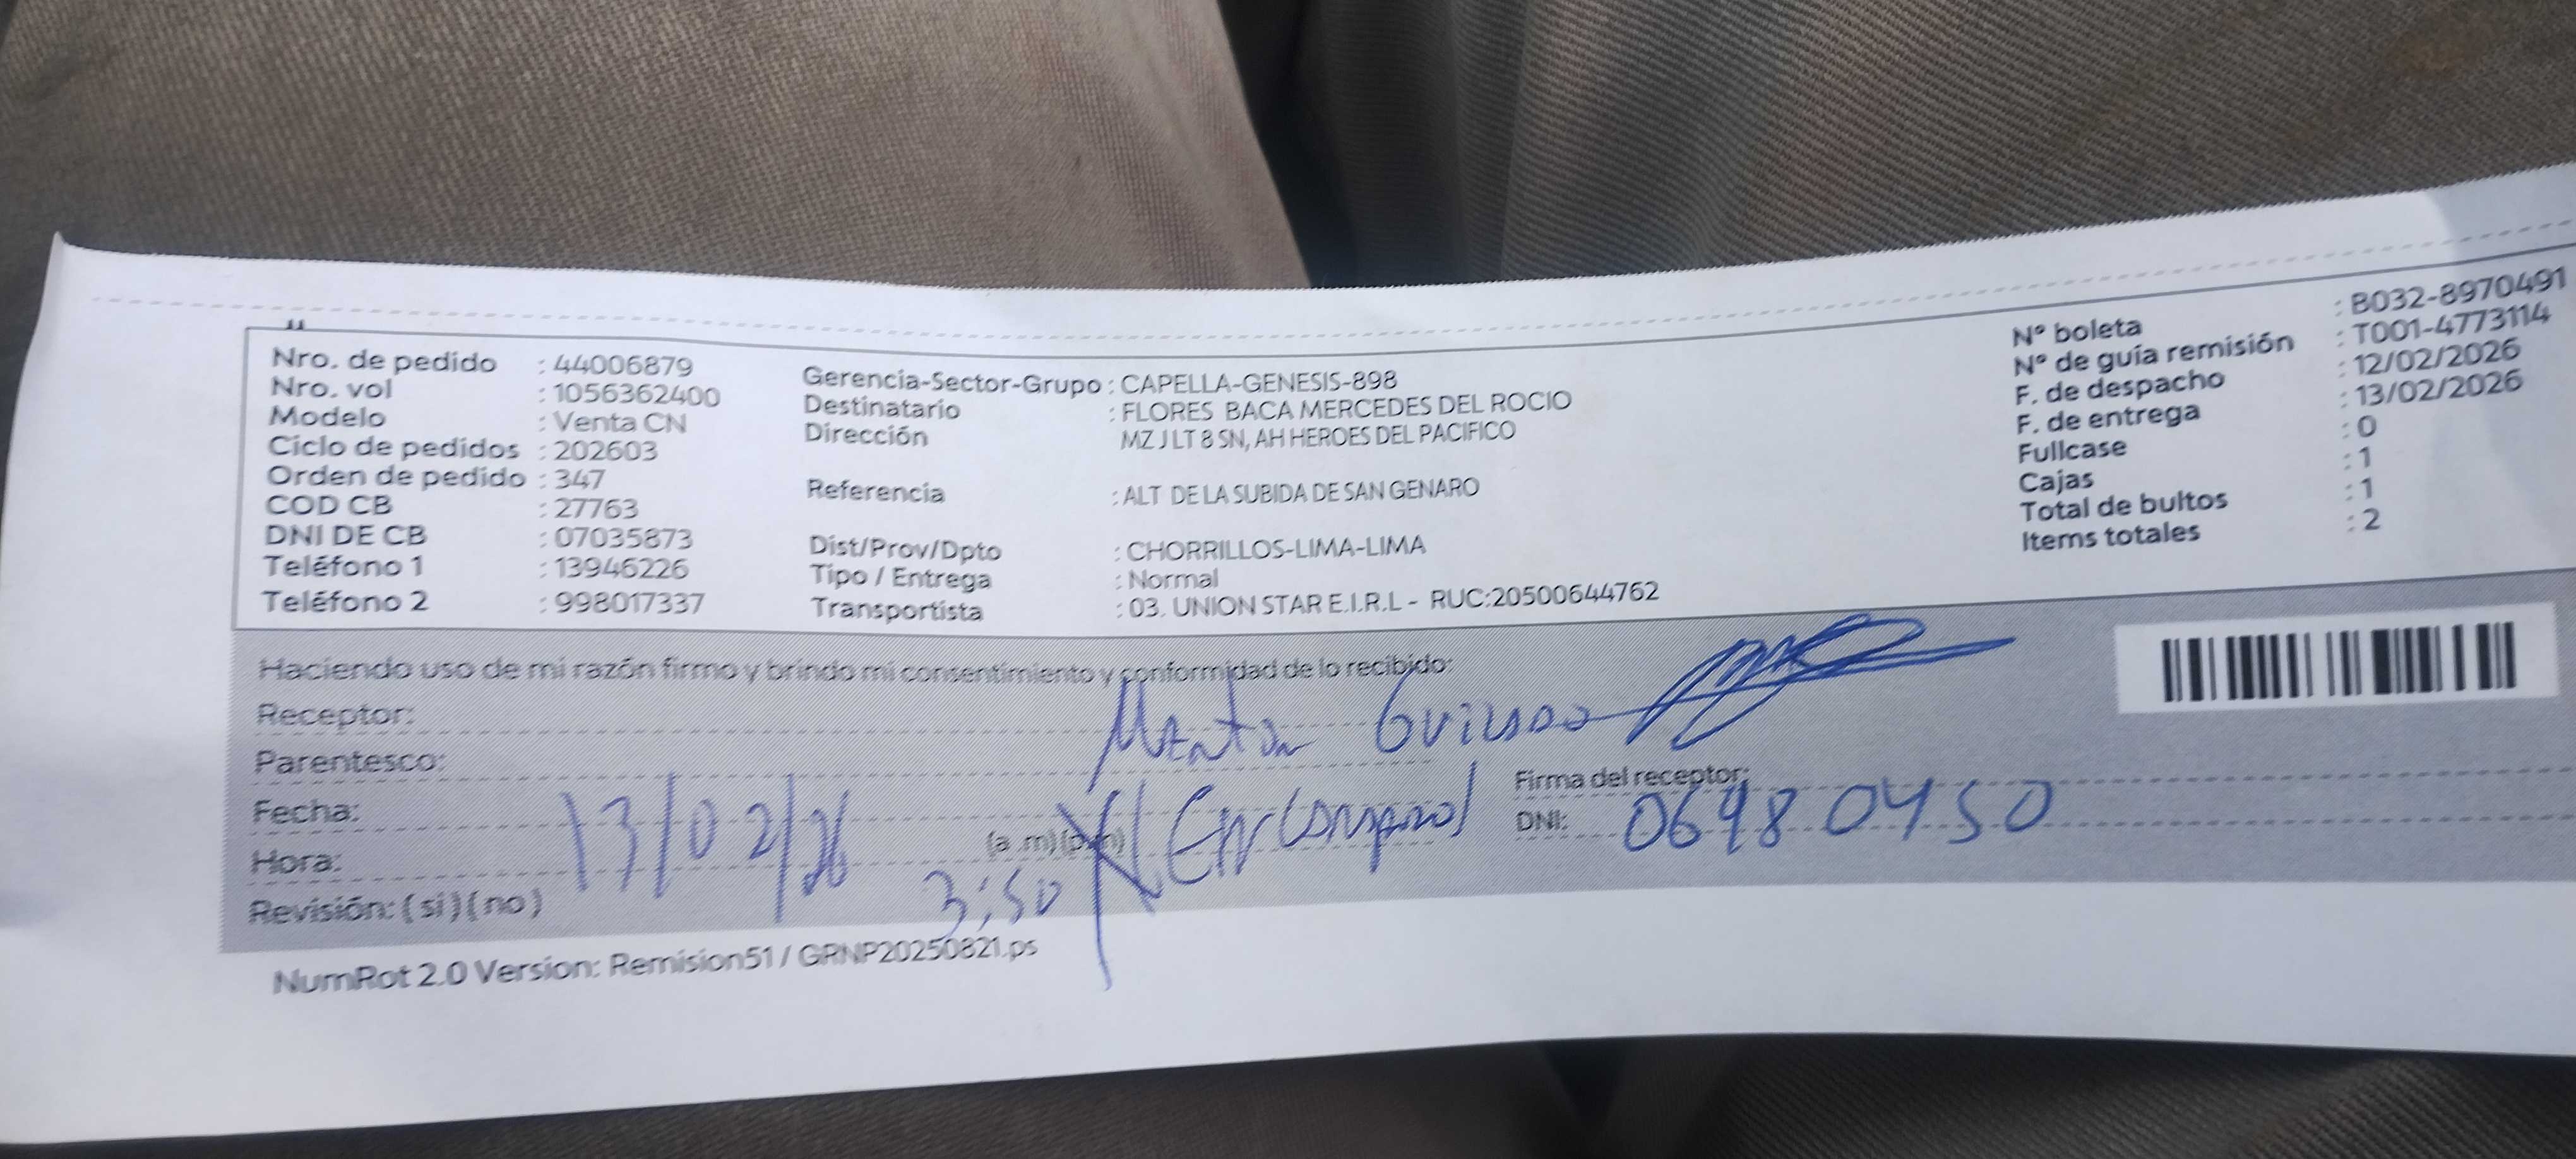 Nro. de pedido : 44006879
Nro. vol : 1056362400
Modelo : Venta CN
Ciclo de pedidos : 202603
Orden de pedido : 347
COD CB : 27763
DNI DE CB : 07035873
Teléfono 1 : 13946226
Teléfono 2 : 998017337
Gerencia-Sector-Grupo : CAPELLA-GENESIS-898
Destinatario : FLORES BACA MERCEDES DEL ROCIO
Dirección MZ J LT 8 SN, AH HEROES DEL PACIFICO
Referencia : ALT DE LA SUBIDA DE SAN GENARO
Dist/Prov/Dpto : CHORRILLOS-LIMA-LIMA
Tipo / Entrega : Normal
Transportista : 03. UNION STAR E.I.R.L - RUC:20500644762
N° boleta : B032-8970491
N° de guía remisión : T001-4773114
F. de despacho : 12/02/2026
F. de entrega : 13/02/2026
Fullcase : 0
Cajas : 1
Total de bultos : 1
Items totales : 2
Haciendo uso de mi razón firmo y brindo mi consentimiento y conformidad de lo recibido:
Receptor:
Parentesco:
Fecha: 13/02/26
Hora: 3:50 (a .m)(p.m)
Revisión: ( si ) ( no )
Firma del receptor:
DNI: 06480450
NumRot 2.0 Version: Remision51 / GRNP20250821.ps